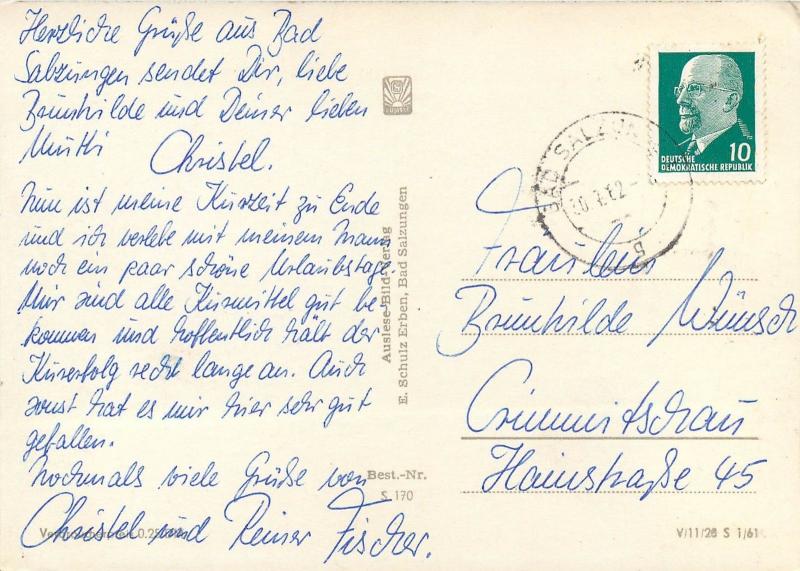 Herzliche Grüße aus Bad
Salzungen sendet Dir, liebe
Brunhilde und Deiner lieben
Mutti Christel.
Nun ist meine Kurzeit zu Ende
und ich verlebe mit meinem Mann
noch ein paar schöne Urlaubstage.
Mir sind alle Kurmittel gut be-
kommen und hoffentlich hält der
Kurerfolg recht lange an. Auch
sonst hat es mir hier sehr gut
gefallen.
Nochmals viele Grüße von
Christel und Reiner Fischer.
Auslese-Bild-Verlag
E. Schulz Erben, Bad Salzungen
Best.-Nr.
S 170
0.25
BAD SALZUNGEN
DEUTSCHE
DEMOKRATISCHE REPUBLIK
10
Fräulein
Brunhilde Wünsch
Crimmitschau
Hainstraße 45
V/11/28 S 1/61